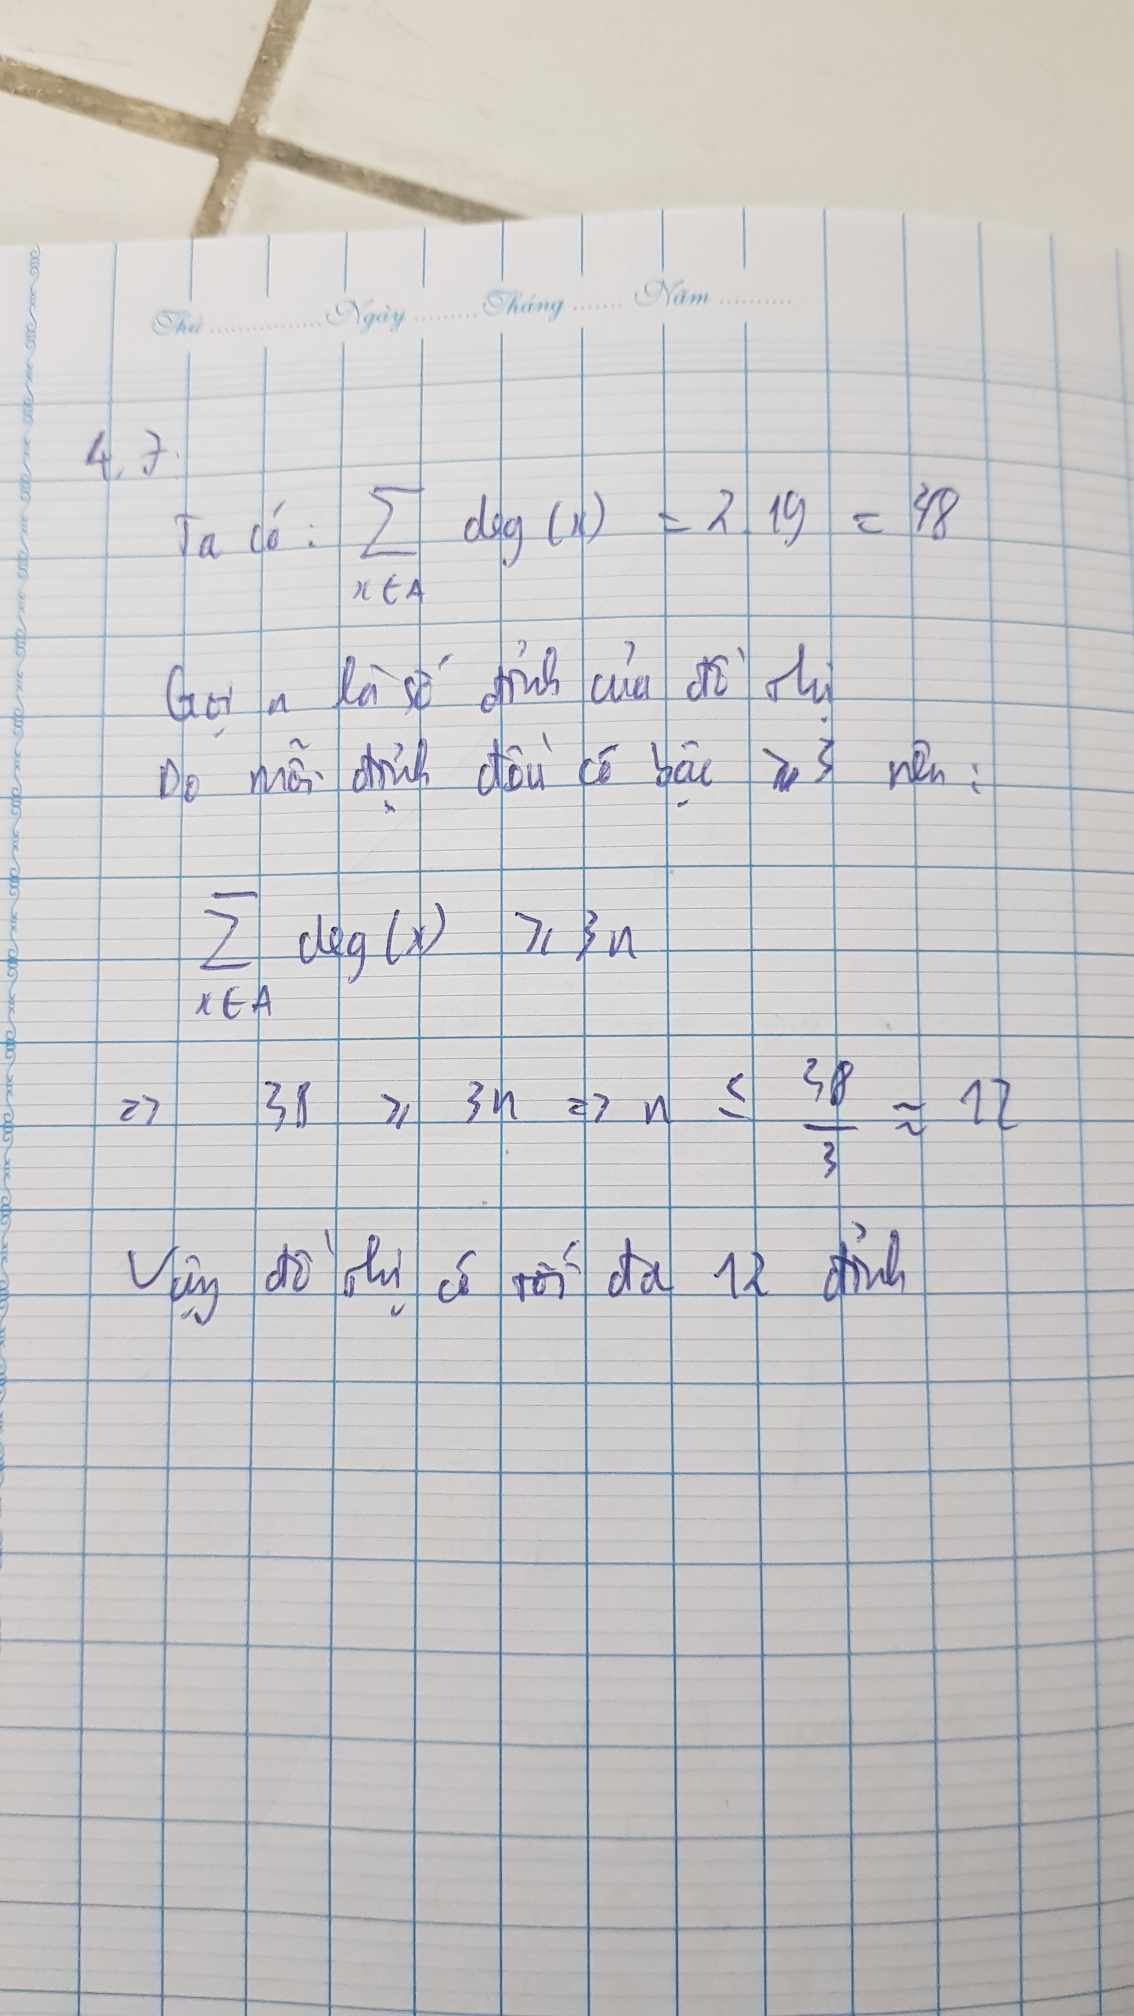 Thứ ............... Ngày ......... Tháng ....... Năm ..........
4.7.
Ta có: ∑ deg(x) = 2.19 = 38
x∈A
Gọi n là số đỉnh của đồ thị
Do mỗi đỉnh đều có bậc ≥ 3 nên:
∑ deg(x) ≥ 3n
x∈A
=> 38 ≥ 3n => n ≤ 38/3 ≈ 12
Vậy đồ thị có tối đa 12 đỉnh